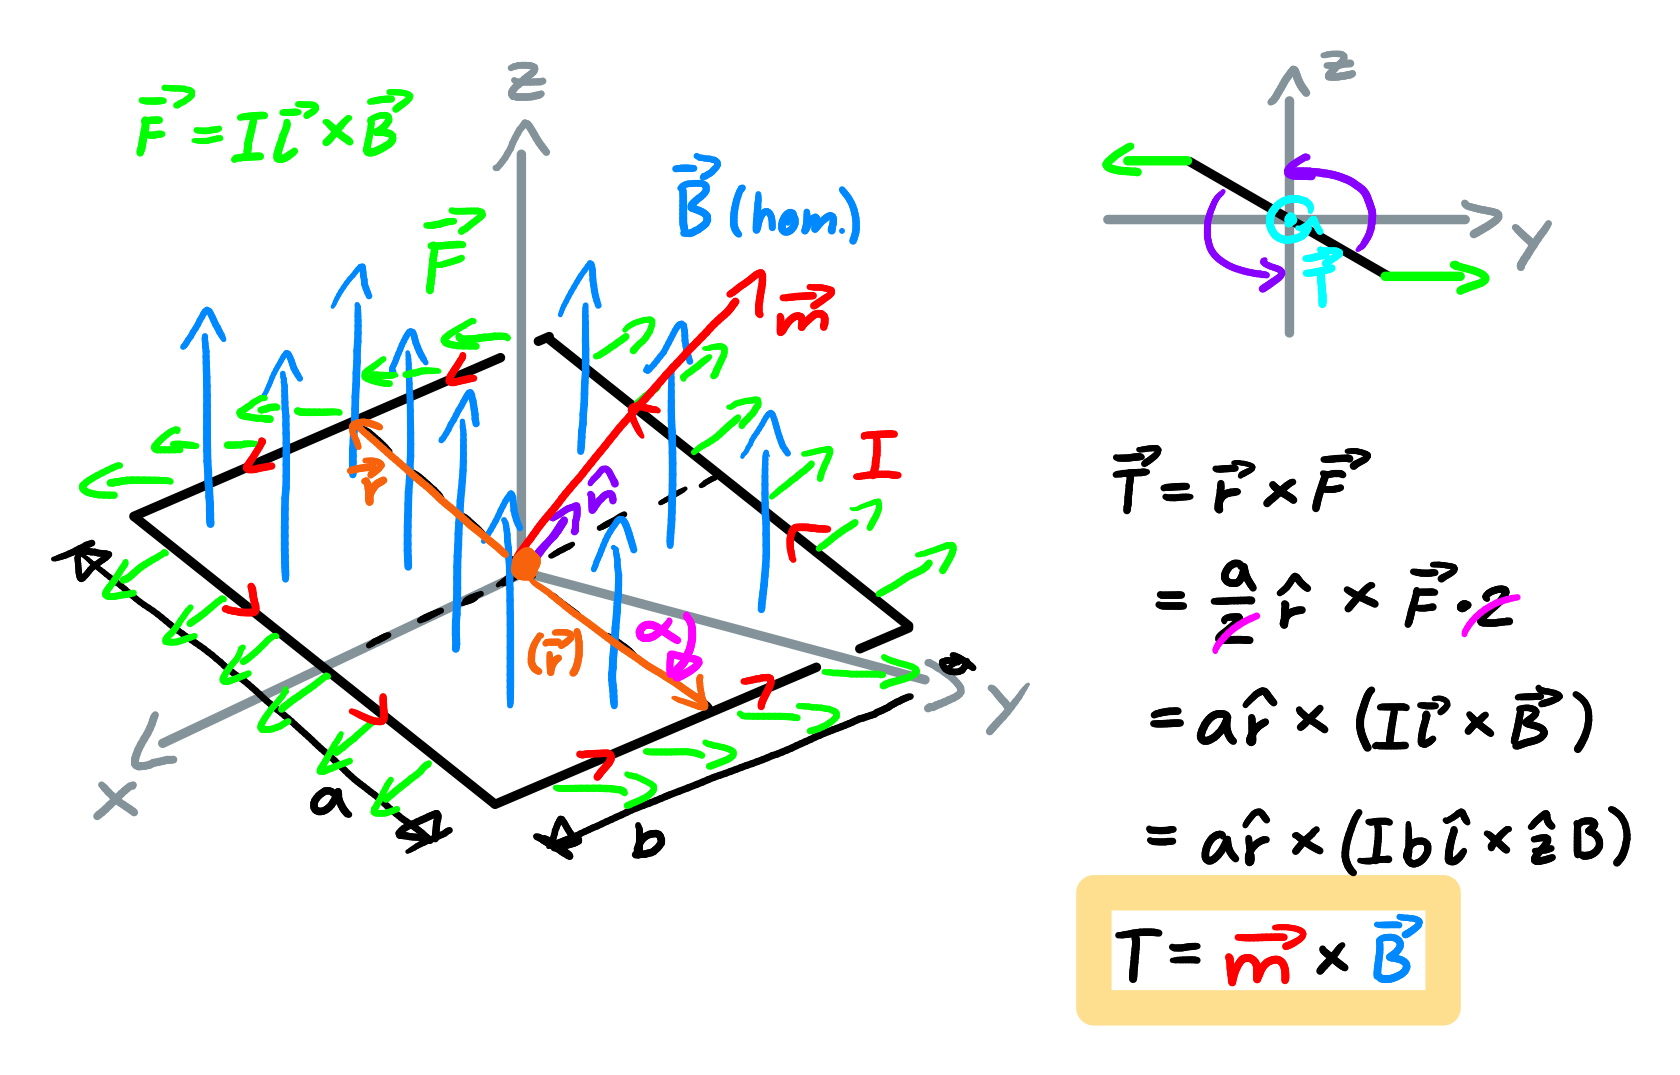 z
F⃗ = I l⃗ × B⃗
B⃗ (hom.)
F⃗
m⃗
I
r⃗
n̂
(r⃗)
α
x
y
a
b
z
y
T⃗
T⃗ = r⃗ × F⃗
= a/2 r̂ × F⃗ · 2
= a r̂ × (I l⃗ × B⃗)
= a r̂ × (I b l̂ × ẑ B)
T = m⃗ × B⃗